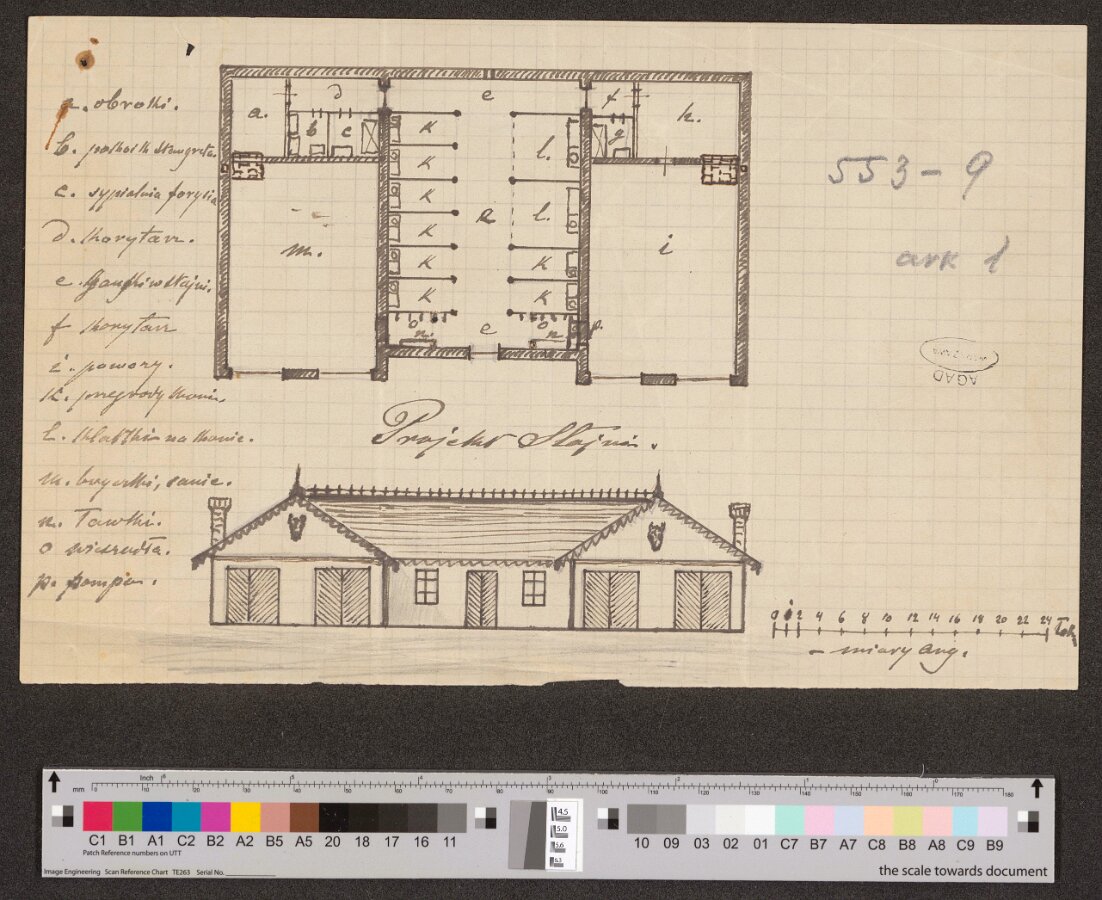 a. obroki.
b. stangreta.
c. sypialnia forysia
d. korytarz.
e. Ganki w stajni.
f korytarz
i. powozy.
k. przegrody konie.
l. klatki na konie.
m. bryczki, sanie.
n. Ławki.
o wieszadła.
p. pompa.
a. d e f k.
b c g
k l.
k
k e l.
m. k i
k k
k k
o o p.
n. e n
553-9
ark 1
AGAD
Projekt Stajni.
0 1 2 4 6 8 10 12 14 16 18 20 22 24 Łok
- miary ang.
Inch
mm
C1 B1 A1 C2 B2 A2 B5 A5 20 18 17 16 11
4.5
5.0
5.6
6.3
10 09 03 02 01 C7 B7 A7 C8 B8 A8 C9 B9
Patch Reference numbers on UTT
Image Engineering Scan Reference Chart TE263 Serial No.
the scale towards document